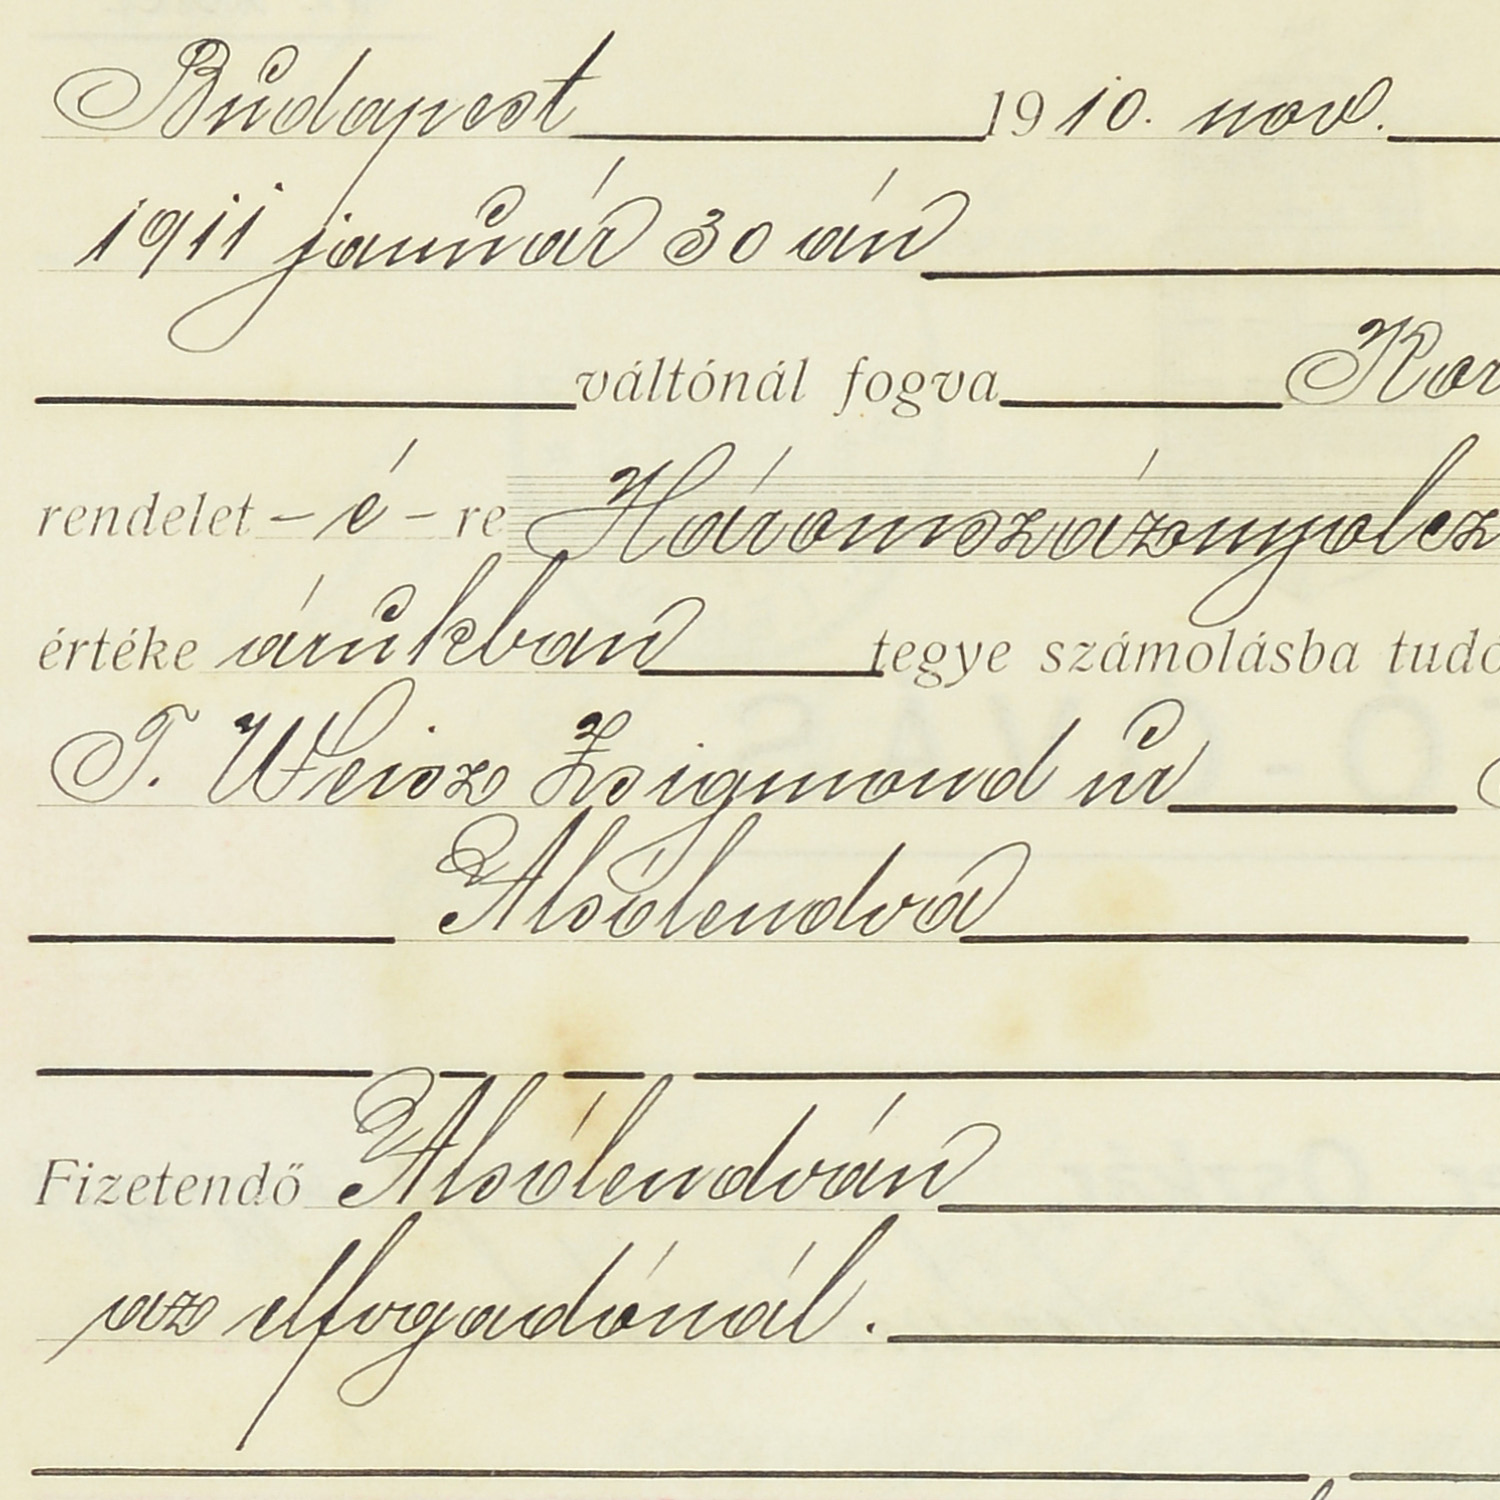 Budapest 1910. nov.
1911 január 30 án
váltónál fogva Kor
rendelet - é - re Háromszáznyolcz
értéke árukban tegye számolásba tudó
T. Weisz Zsigmond úr
Alsólendva
Fizetendő Alsólendván
az elfogadónál.